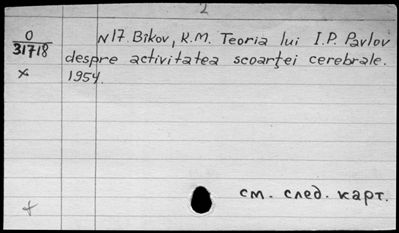 2
O
31718
x
N17. Bikov, K.M. Teoria lui I.P. Pavlov
despre activitatea scoarţei cerebrale.
1954.
см. след. карт.
+